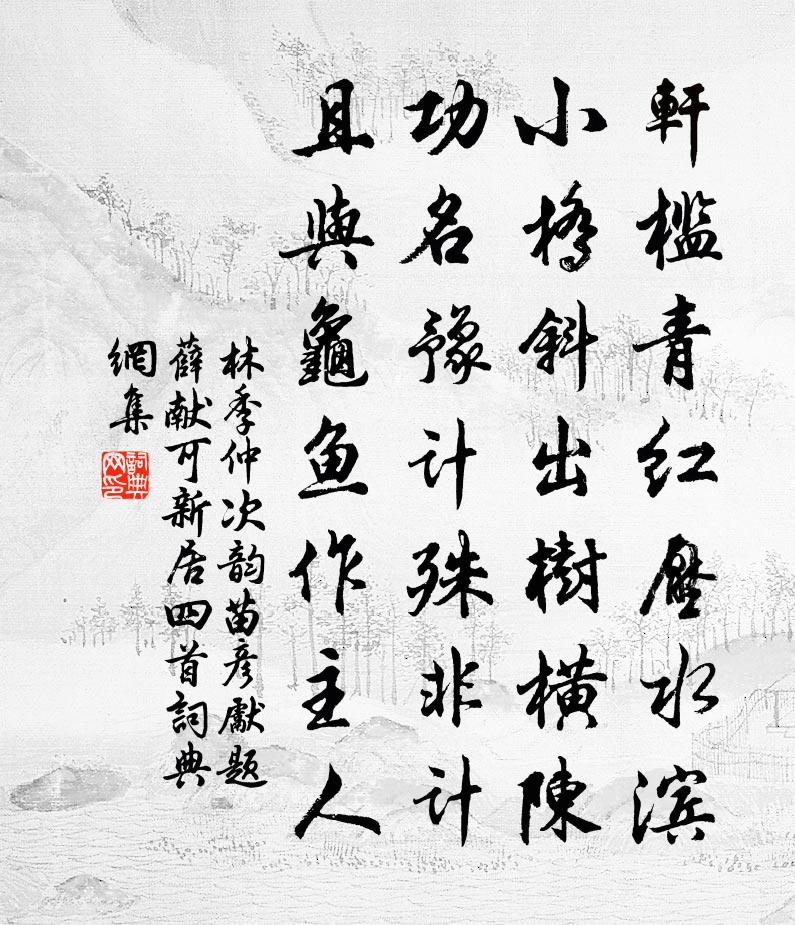 軒檻青红壓水滨
小橋斜出樹橫陳
功名豫计殊非计
且與龜鱼作主人
林季仲次韵苗彦獻题
薛献可新居四首詞典
網集
詞典
网印